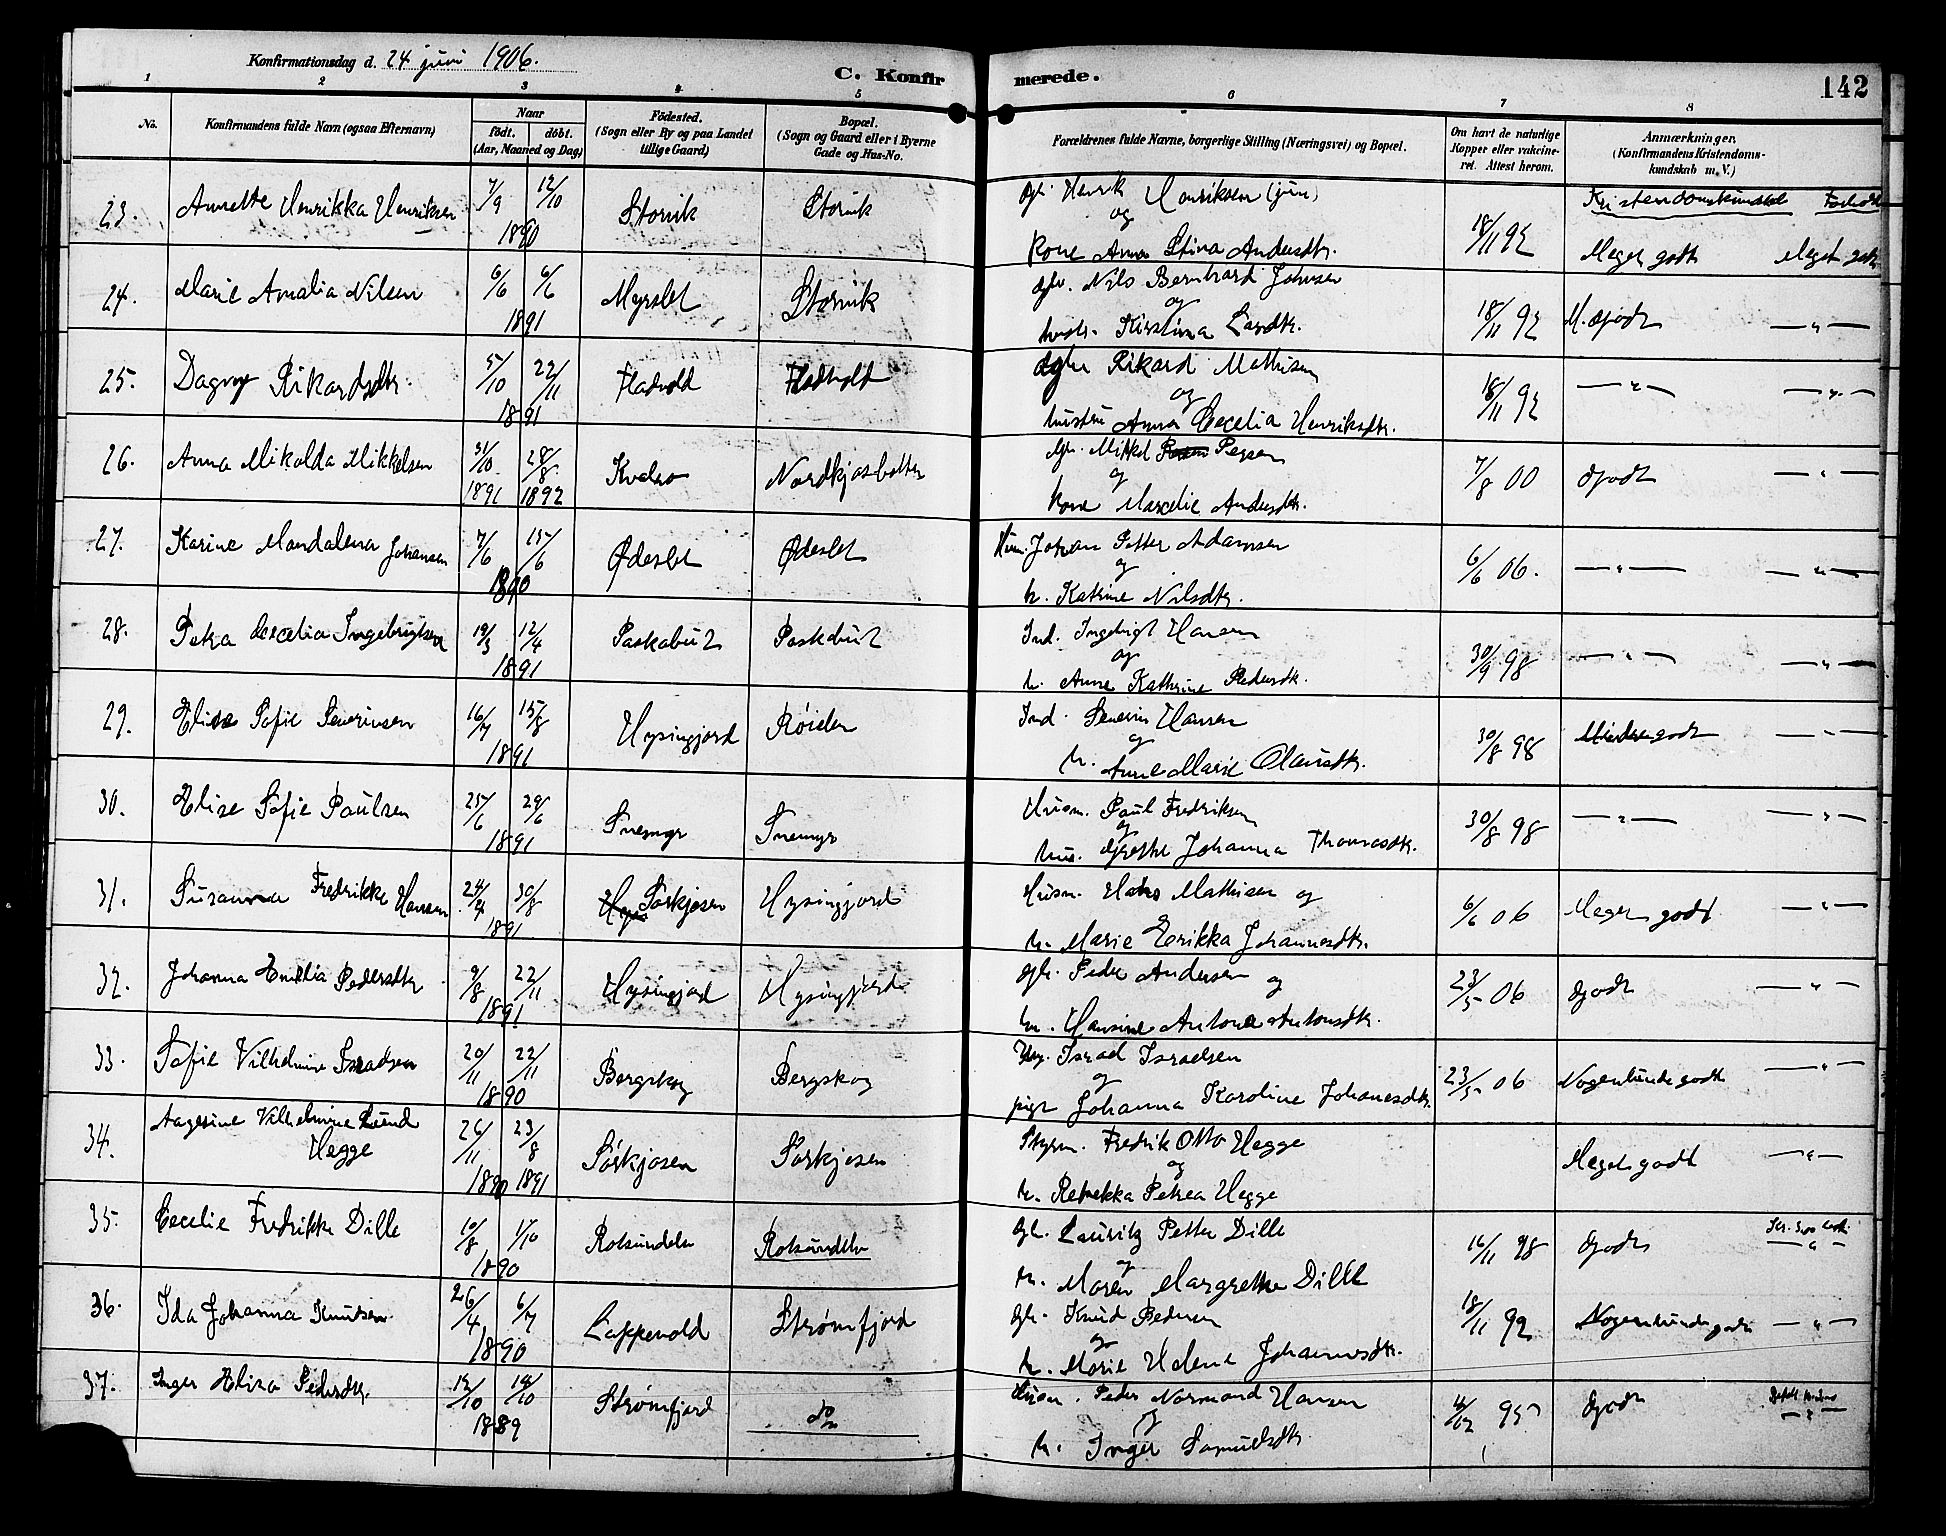 Konfirmationsdag d. 24 juni 1906.
C. Konfirmerede.
142
1 2 3 4 5 6 7 8
No.
Konfirmandens fulde Navn (ogsaa Efternavn)
Naar
födt. döbt.
(Aar, Maaned og Dag)
Födested.
(Sogn eller By og paa Landet tillige Gaard)
Bopæl.
(Sogn og Gaard eller i Byerne Gade og Hus-No.
Forældrenes fulde Navne, borgerlige Stilling (Næringsvei) og Bopæl.
Om havt de naturlige Kopper eller vakcineret. Attest herom.
Anmærkninger.
(Konfirmandens Kristendomskundskab m. V.)
Kristendomskundskab Forhold
23. Annette Henrikka Henriksen 7/9 12/10 1890 Storvik Storvik
Gbr. Henrik Henriksen (jun)
og
kone Anna Stina Andersdtr. 18/11 92 Meget godt Meget godt
24. Marie Amalia Nilsen 6/6 6/6 1891 Myrslet Storvik
Gbr. Nils Bernhard Johnsen
og
hustr. Kirstina Larsdtr. 18/11 92 M. Godt — " —
25. Dagny Rikardsdtr. 5/10 22/11 1891 Fladvold Fladvold
Gbr Rikard Mathisen
og
hustru Anna Cecelia Henriksdtr. 18/11 92 — " — — " —
26. Anna Mikolda Mikkelsen 31/10 1891 28/8 1892 Kvalsø Nordkjosbotten
Gbr. Mikkel Persen
og
kone Marelie Andersdtr. 7/8 00 Godt — " —
27. Karine Mandalena Johansen 7/6 15/6 1890 Ødeslet Ødeslet
Husm. Johan Petter Adamsen
og
h. Katrine Nilsdtr. 6/6 06. — " — — " —
28. Petra Cecelia Ingebrigtsen 19/3 12/4 1891 Paskabut Paskabut
Ind. Ingebrigt Hansen
og
h. Anne Kathrine Pedersdtr. 30/9 98 — " — — " —
29. Elise Sofie Severinsen 16/7 15/8 1891 Hysingjord Røielen
Ind. Severin Hansen
og
h. Anne Marie Olausdtr. 30/8 98 Mindre godt — " —
30. Elise Sofie Paulsen 25/6 29/6 1891 Snemyr Snemyr
Husm. Paul Fredriksen
og
hus. Grethe Johanna Thomasdtr. 30/8 98 — " — — " —
31. Susanna Fredrikke Hansen 24/4 30/8 1891 Sørkjosen Hysingjord
Husm. Hans Mathisen og
h. Marie Erikka Johannesdtr. 6/6 06 Meget godt — " —
32. Johanna Emilia Pedersdtr 9/8 22/11 1891 Hysingjord Hysingjord
Gbr. Peder Andersen og
h. Hansine Antone Antonsdtr. 23/5 06 Godt — " —
33. Sofie Vilhelmine Israelsen 20/11 22/11 1890 Bergskog Bergskog
Ung. Israel Israelsen
og
pige Johanna Karoline Johanesdtr. 23/5 06 Nogenlunde godt — " —
34. Aagesine Vilhelmine Lund
Hegge 26/11 1890 23/8 1891 Sørkjosen Sørkjosen
Styrm. Fredrik Otto Hegge
og
h. Rebekka Petrea Hegge Meget godt — " —
35. Cecelie Fredrikke Dille 10/8 1/10 1890 Rotsundelv Rotsundelv
Gbr. Lauritz Petter Dille
og
h. Maren Margrethe Dille 16/11 98 Godt — " —
36. Ida Johanna Knutsen. 26/4 6/7 1890 Lappevold Strømfjord
Gbr. Knud Pedersen
og
h. Marie Helene Johannesdtr. 18/11 92 Nogenlunde godt — " —
37. Inger Elisa Pedersdtr. 12/10 14/10 1889 Strømfjord do
Husm. Peder Normand Hansen
og
h. Inger Samuelsdtr 95 Godt — " —